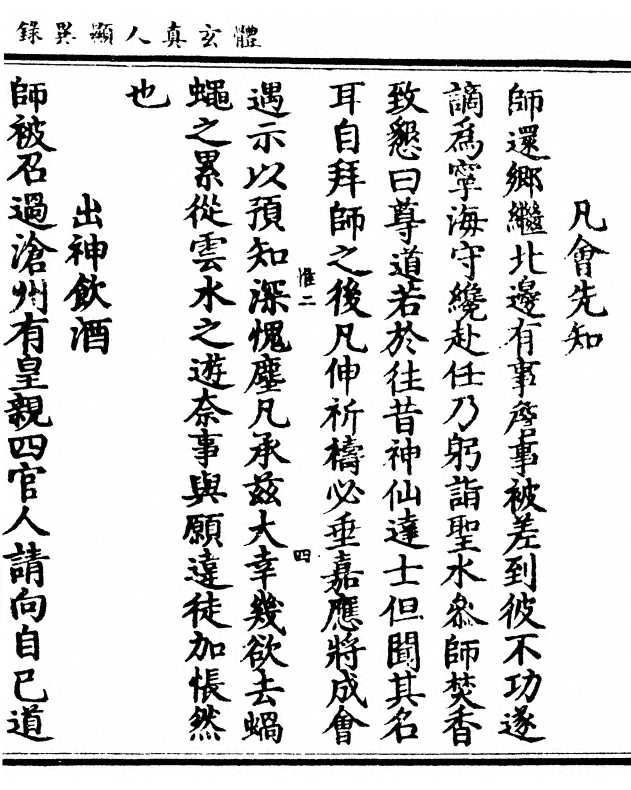 體玄真人顯異錄
凡會先知
師還鄉繼北邊有事詹事被差到彼不功遂
謫爲寧海守纔赴任乃躬詣聖水叅師焚香
致懇曰尊道若於往昔神仙達士但聞其名
耳自拜師之後凡伸祈禱必垂嘉應將成會
惟二
四
遇示以預知深愧塵凡承茲大幸幾欲去蝸
蠅之累從雲水之遊奈事與願違徒加悵然
也
出神飲酒
師被召過滄州有皇親四官人請向自己道